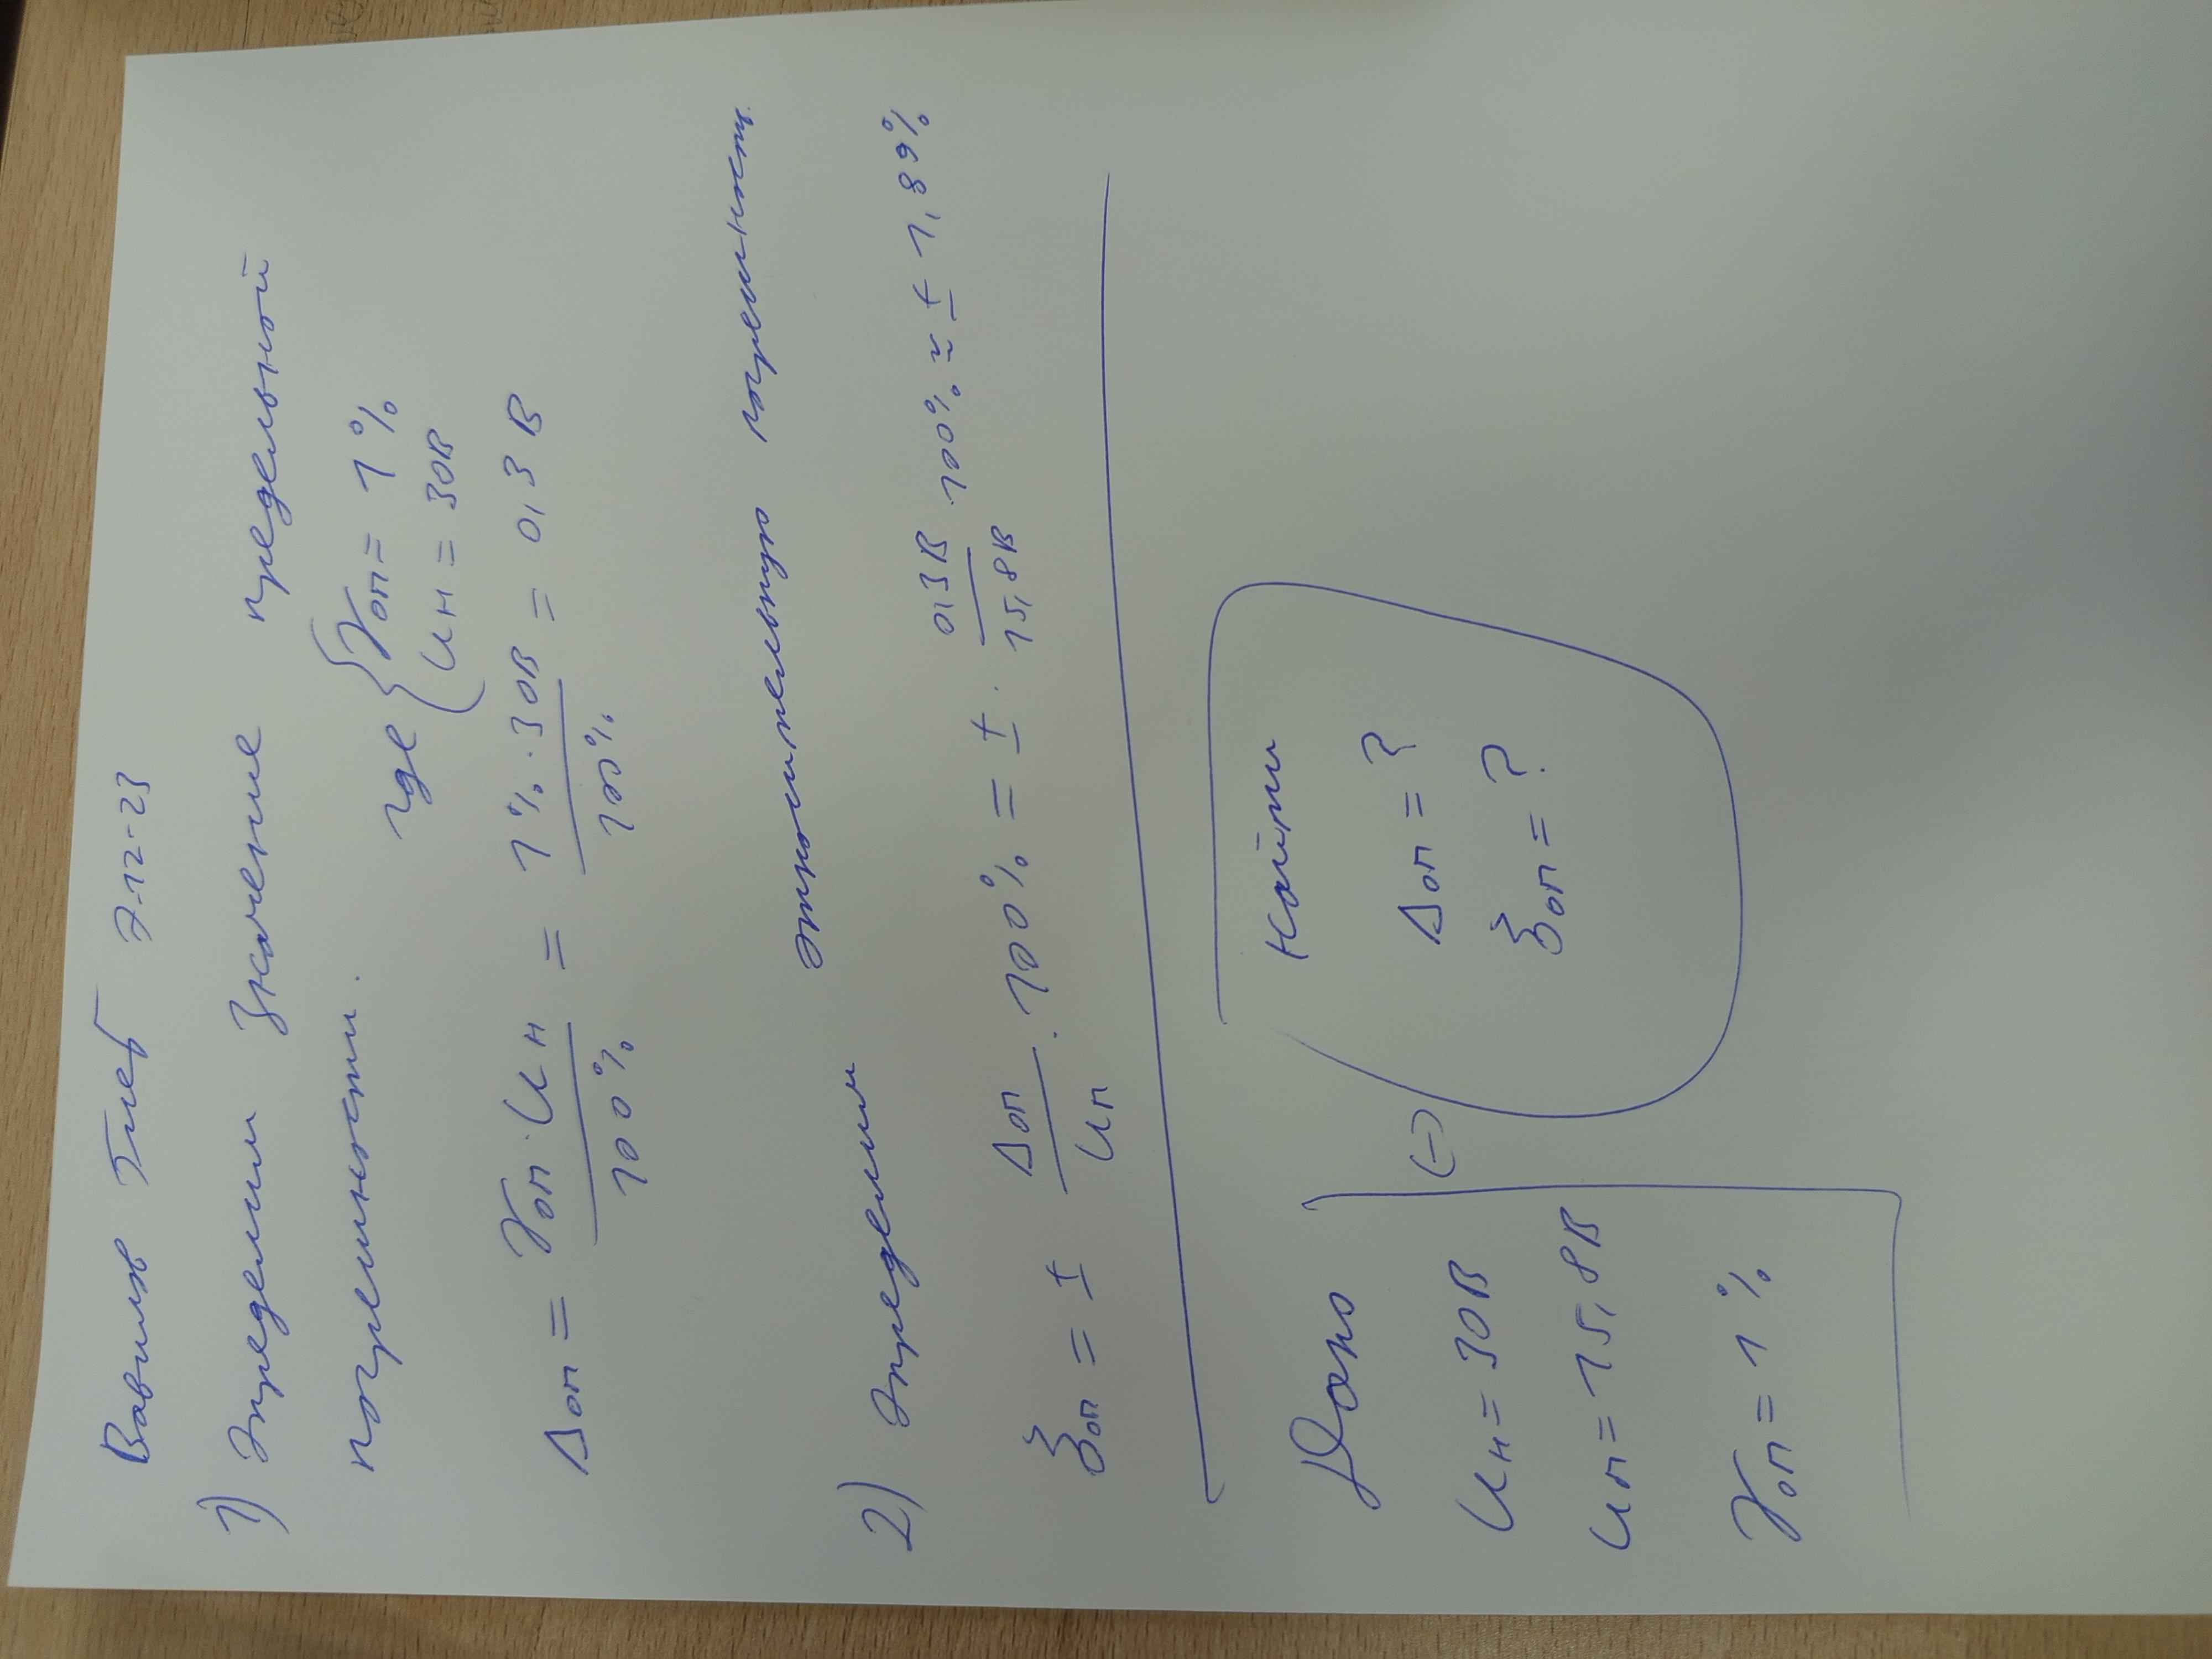 Вавилов Глеб Э-12-23
1) Определим значение предельной
погрешности. где { γоп = 1%
Uн = 30В
Δоп = γоп · Uн / 100% = 1% · 30В / 100% = 0,3 В
2) Определим относительную погрешност.
ξоп = ± Δоп / Uп · 100% = ± · 0,3В / 15,8В · 100% ≈ ± 1,89%
Дано
Uн = 30В
Uп = 15,8В
γоп = 1%
(–)
Найти
Δоп = ?
ξоп = ?